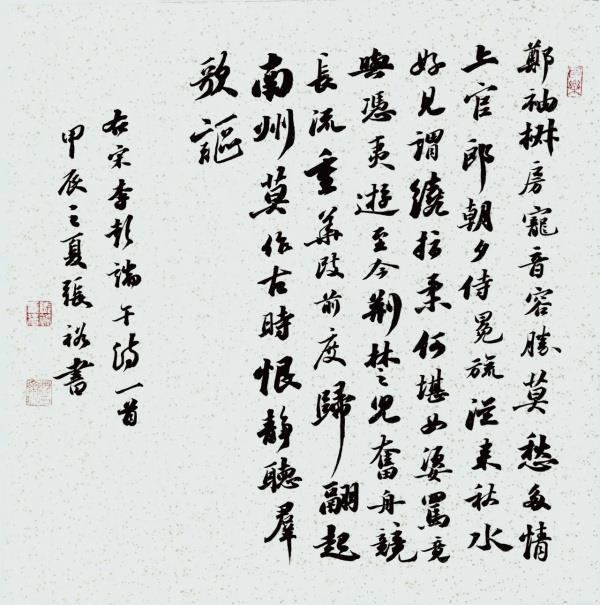 鄭袖椒房寵音容勝莫愁多情
上官郎朝夕侍冕旒從來秋水
好見謂繞指柔何堪女嬃罵竟
與憑夷遊至今荊楚兒奮舟競
長流重華跂前度歸翮起
南州莫作古時恨靜聽羣
歌謳
右宋李彭端午詩一首
甲辰之夏張裕書